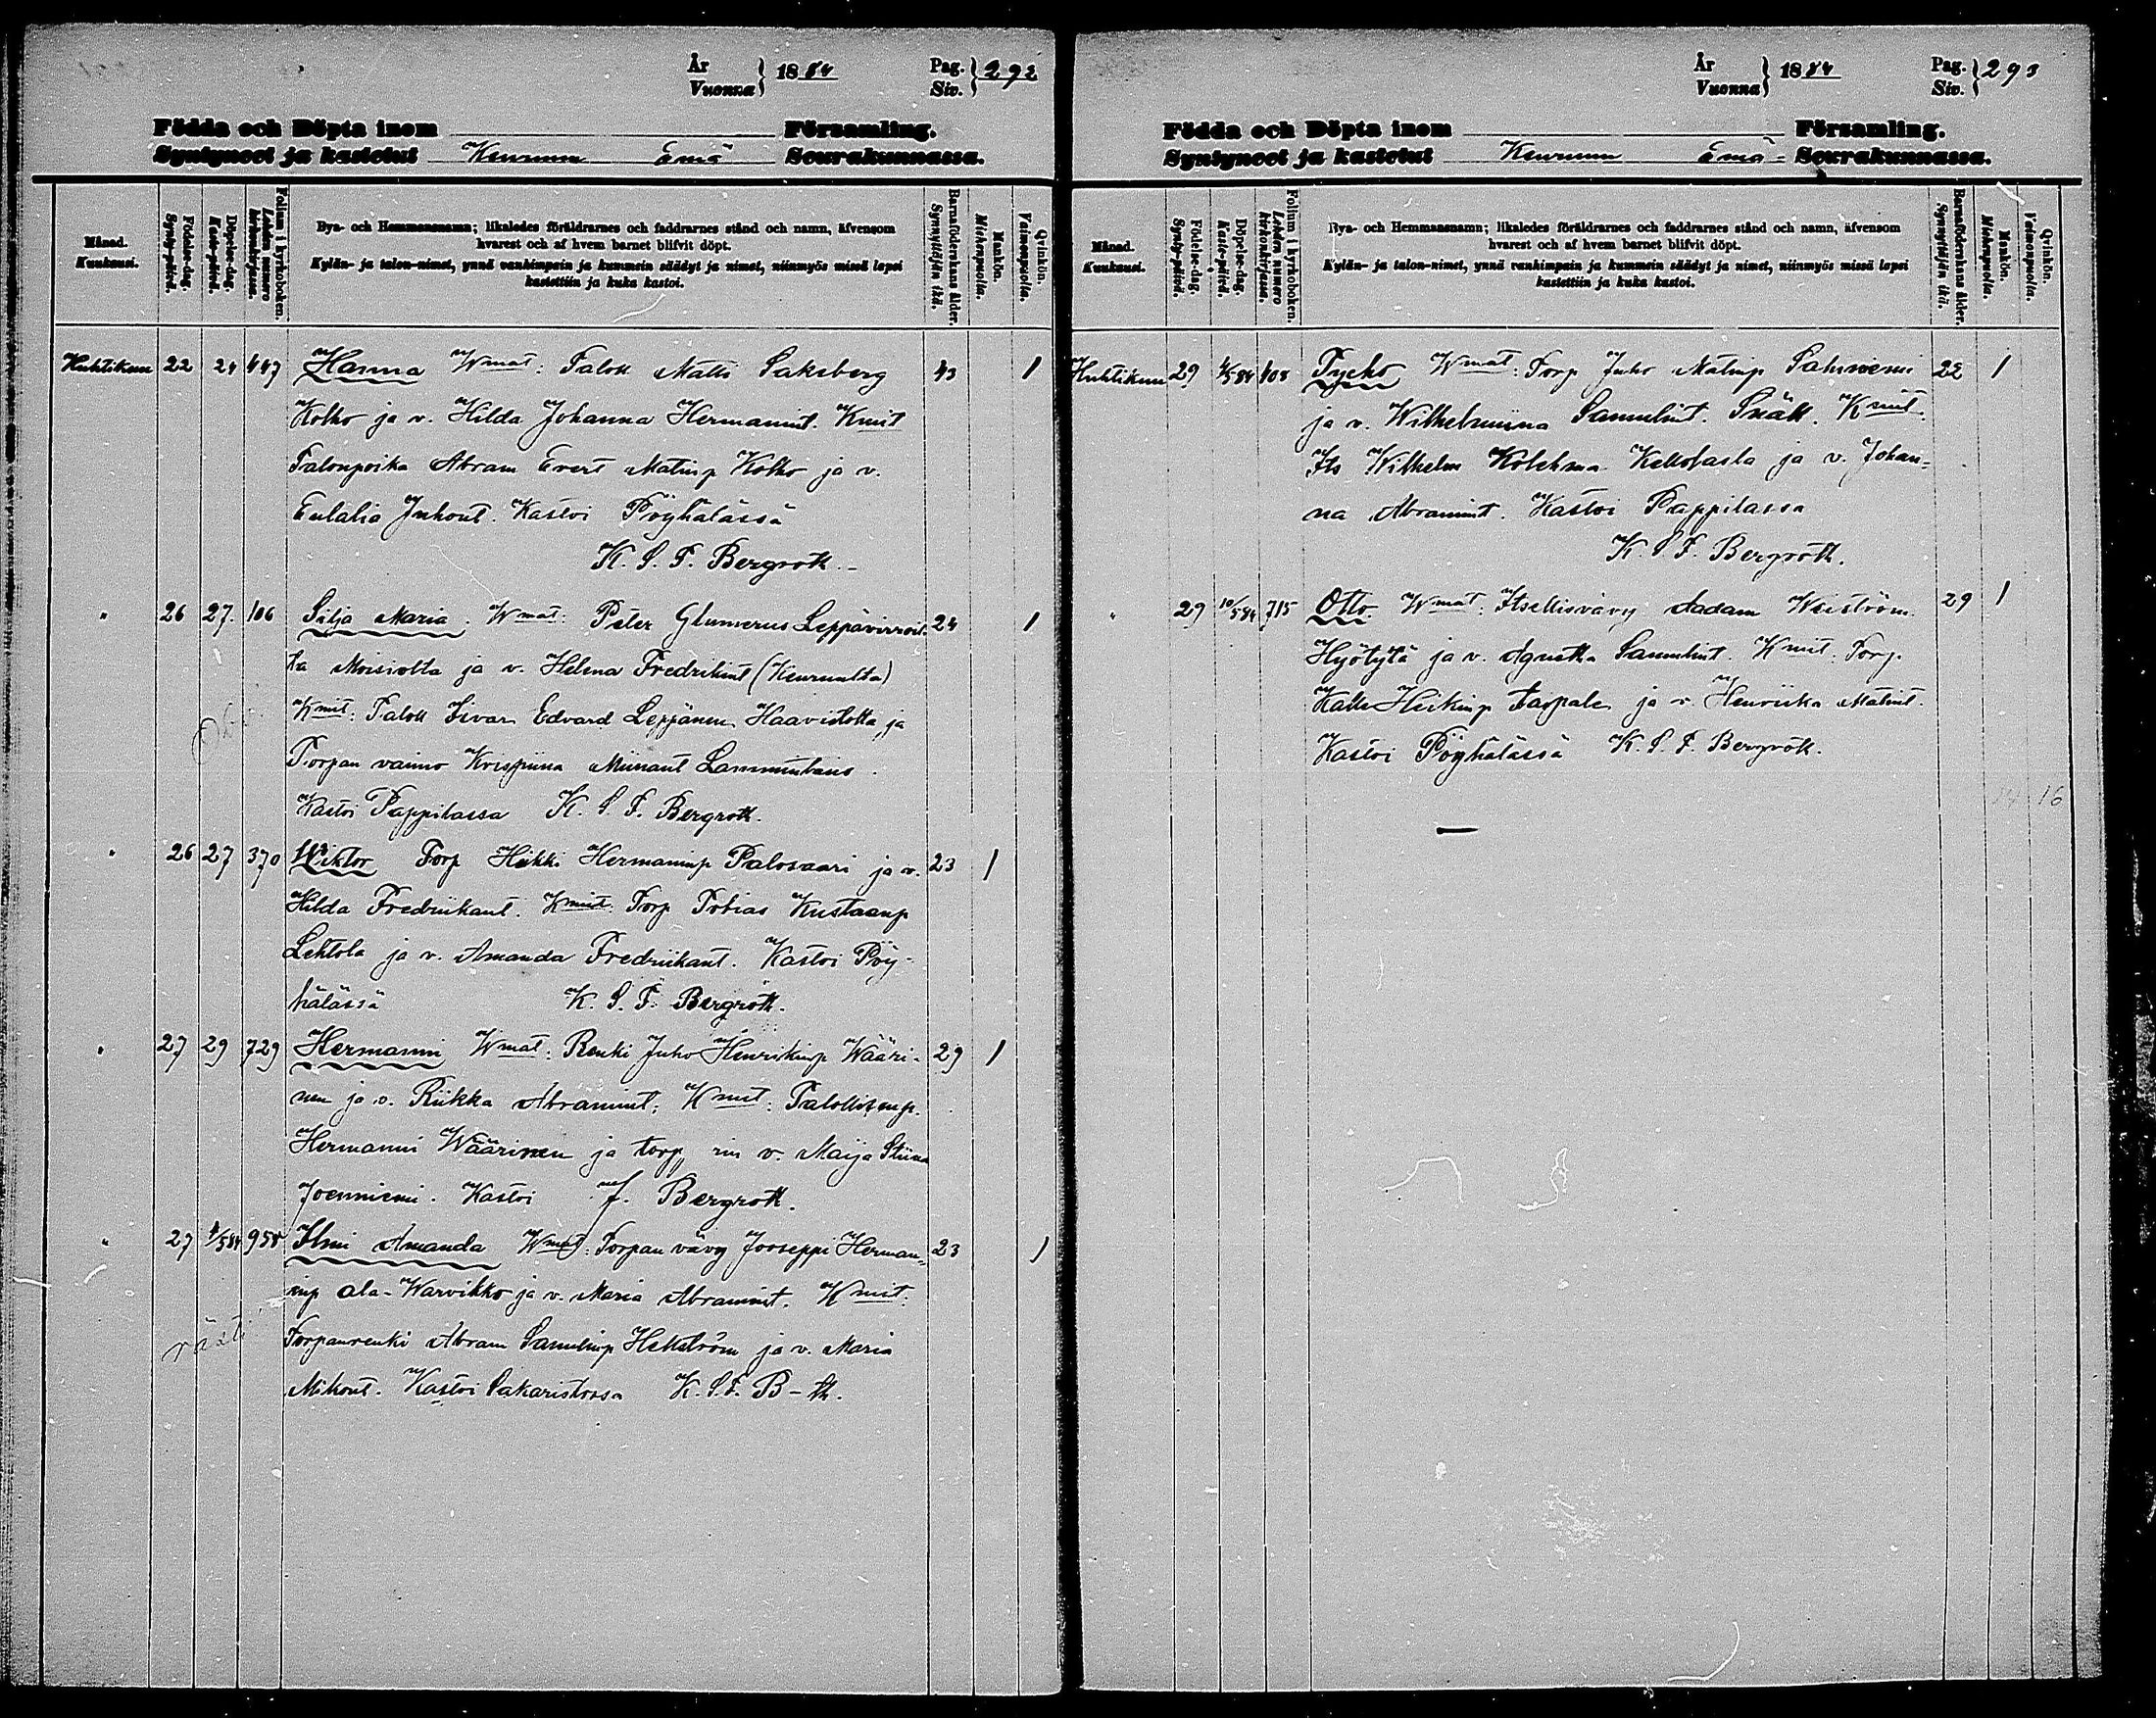 År
Vuonna } 1884
Pag.
Siv. } 292
Födda och Döpta inom Församling.
Syntyneet ja kastetut Keuruun Emä Seurakunnassa.
Månad.
Kuukausi.
Födelse-dag.
Synty-päivä.
Döpelse-dag.
Kaste-päivä.
Folium i kyrkoboken.
Lehden numero
kirkonkirjassa.
Bya- och Hemmansnamn; likaledes föräldrarnes och faddrarnes stånd och namn, äfvensom
hvarest och af hvem barnet blifvit döpt.
Kylän- ja talon-nimet, ynnä vanhimpain ja kummein säädyt ja nimet, niinmyös missä lapsi
kastettiin ja kuka kastoi.
Barnaföderskans ålder.
Synnyttäjän ikä.
Mankön.
Miehenpuolia.
Qvinkön.
Vaimonpuolia.
Huhtikuu 22 24 447 Hanna Wmat: Talok Matti Saksberg 43 1
Kolho ja v. Hilda Johanna Hermannint. Kmit
Talonpoika Abram Evert Matinp Kolho ja v.
Eulalia Juhont. Kastoi Pöyhälässä
K. S. F. Bergroth.
" 26 27. 106 Silja Maria. Wmat: Peter Glumerus Leppävirroil- 24 1
ta Moisiolta ja v. Helena Fredrikint (Keuruulta)
Kmit: Talok Iivar Edvard Leppänen Haavistolta, ja
Torpan vaimo Krispiina Miinant Lamminhaus.
Kastoi Pappilassa K. S. F. Bergroth.
" 26 27 370 Wiktor Torp Heikki Hermaninp Palosaari ja v. 23 1
Hilda Fredriikant. Kmit: Torp Tobias Kustaanp
Lehtola ja v. Amanda Fredriikant. Kastoi Pöy-
hälässä K. S. F. Bergroth.
" 27 29 729 Hermanni Wmat: Renki Juho Henrikinp Wääri- 29 1
nen ja v. Riikka Abramint; Kmit: Talollisenp.
Hermanni Wäärinen ja torp rin v. Maija Stiina
Joenniemi. Kastoi F. Bergroth.
" 27 4/5 84 958 Ilmi Amanda Wmat: Torpan vävy Jooseppi Herman- 23 1
inp ala-Warvikko ja v. Maria Abramint. Kmit:
Torpanrenki Abram Samulinp Hellström ja v. Maria
Mikont. Kastoi Sakaristossa K. S. F. B-th.
År
Vuonna } 1884
Pag.
Siv. } 293
Födda och Döpta inom Församling.
Syntyneet ja kastetut Keuruun Emä- Seurakunnassa.
Månad.
Kuukausi.
Födelse-dag.
Synty-päivä.
Döpelse-dag.
Kaste-päivä.
Folium i kyrkoboken.
Lehden numero
kirkonkirjassa.
Bya- och Hemmansnamn; likaledes föräldrarnes och faddrarnes stånd och namn, äfvensom
hvarest och af hvem barnet blifvit döpt.
Kylän- ja talon-nimet, ynnä vanhimpain ja kummein säädyt ja nimet, niinmyös missä lapsi
kastettiin ja kuka kastoi.
Barnaföderskans ålder.
Synnyttäjän ikä.
Mankön.
Miehenpuolia.
Qvinkön.
Vaimonpuolia.
Huhtikuu 29 4/5 84 408 Tycho Wmat: Torp Juho Matinp Salmiemi 22 1
ja v. Wilhelmiina Samulint. Snäll. Kmit.
Its Wilhelm Kolehma Kellosalta ja v. Johan-
na Abramint. Kastoi Pappilassa
K. S. F. Bergroth.
" 29 10/5 84 715 Otto Wmat: Itsellisvävy Aadam Wiström 29 1
Hyötylä ja v. Agustta Samulint. Kmit: Torp.
Kalle Heikinp Aarpale ja v. Henriika Matint.
Kastoi Pöyhälässä K. S. F. Bergroth.
14 16